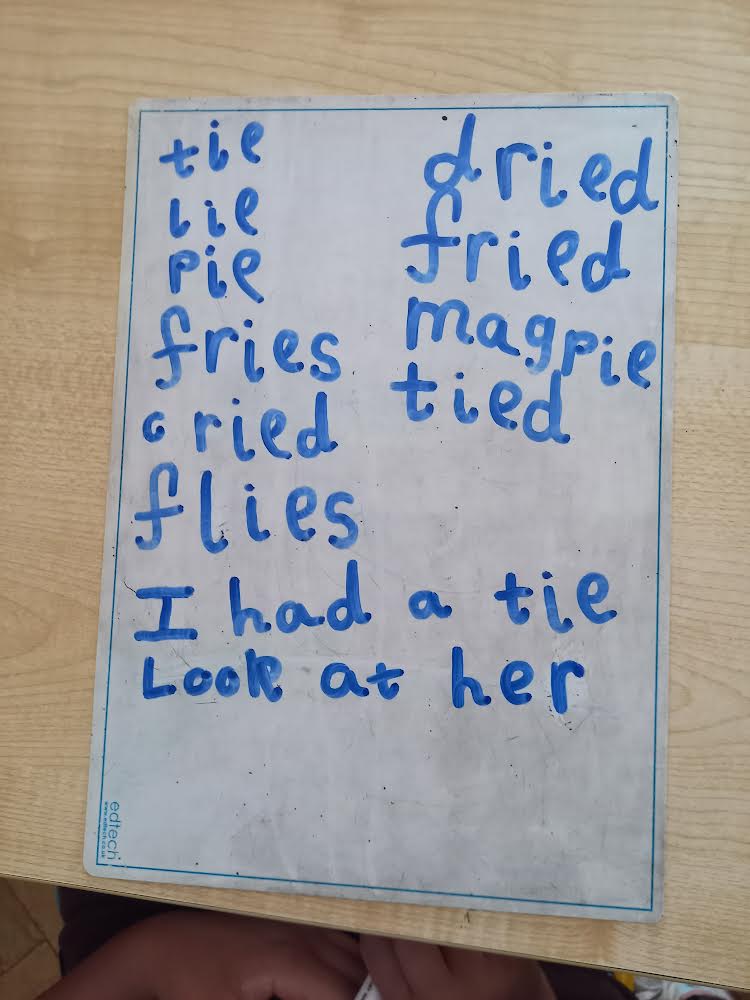 tie
lie
pie
fries
cried
flies
dried
fried
magpie
tied
I had a tie
Look at her
edtech
www.edtech.co.uk